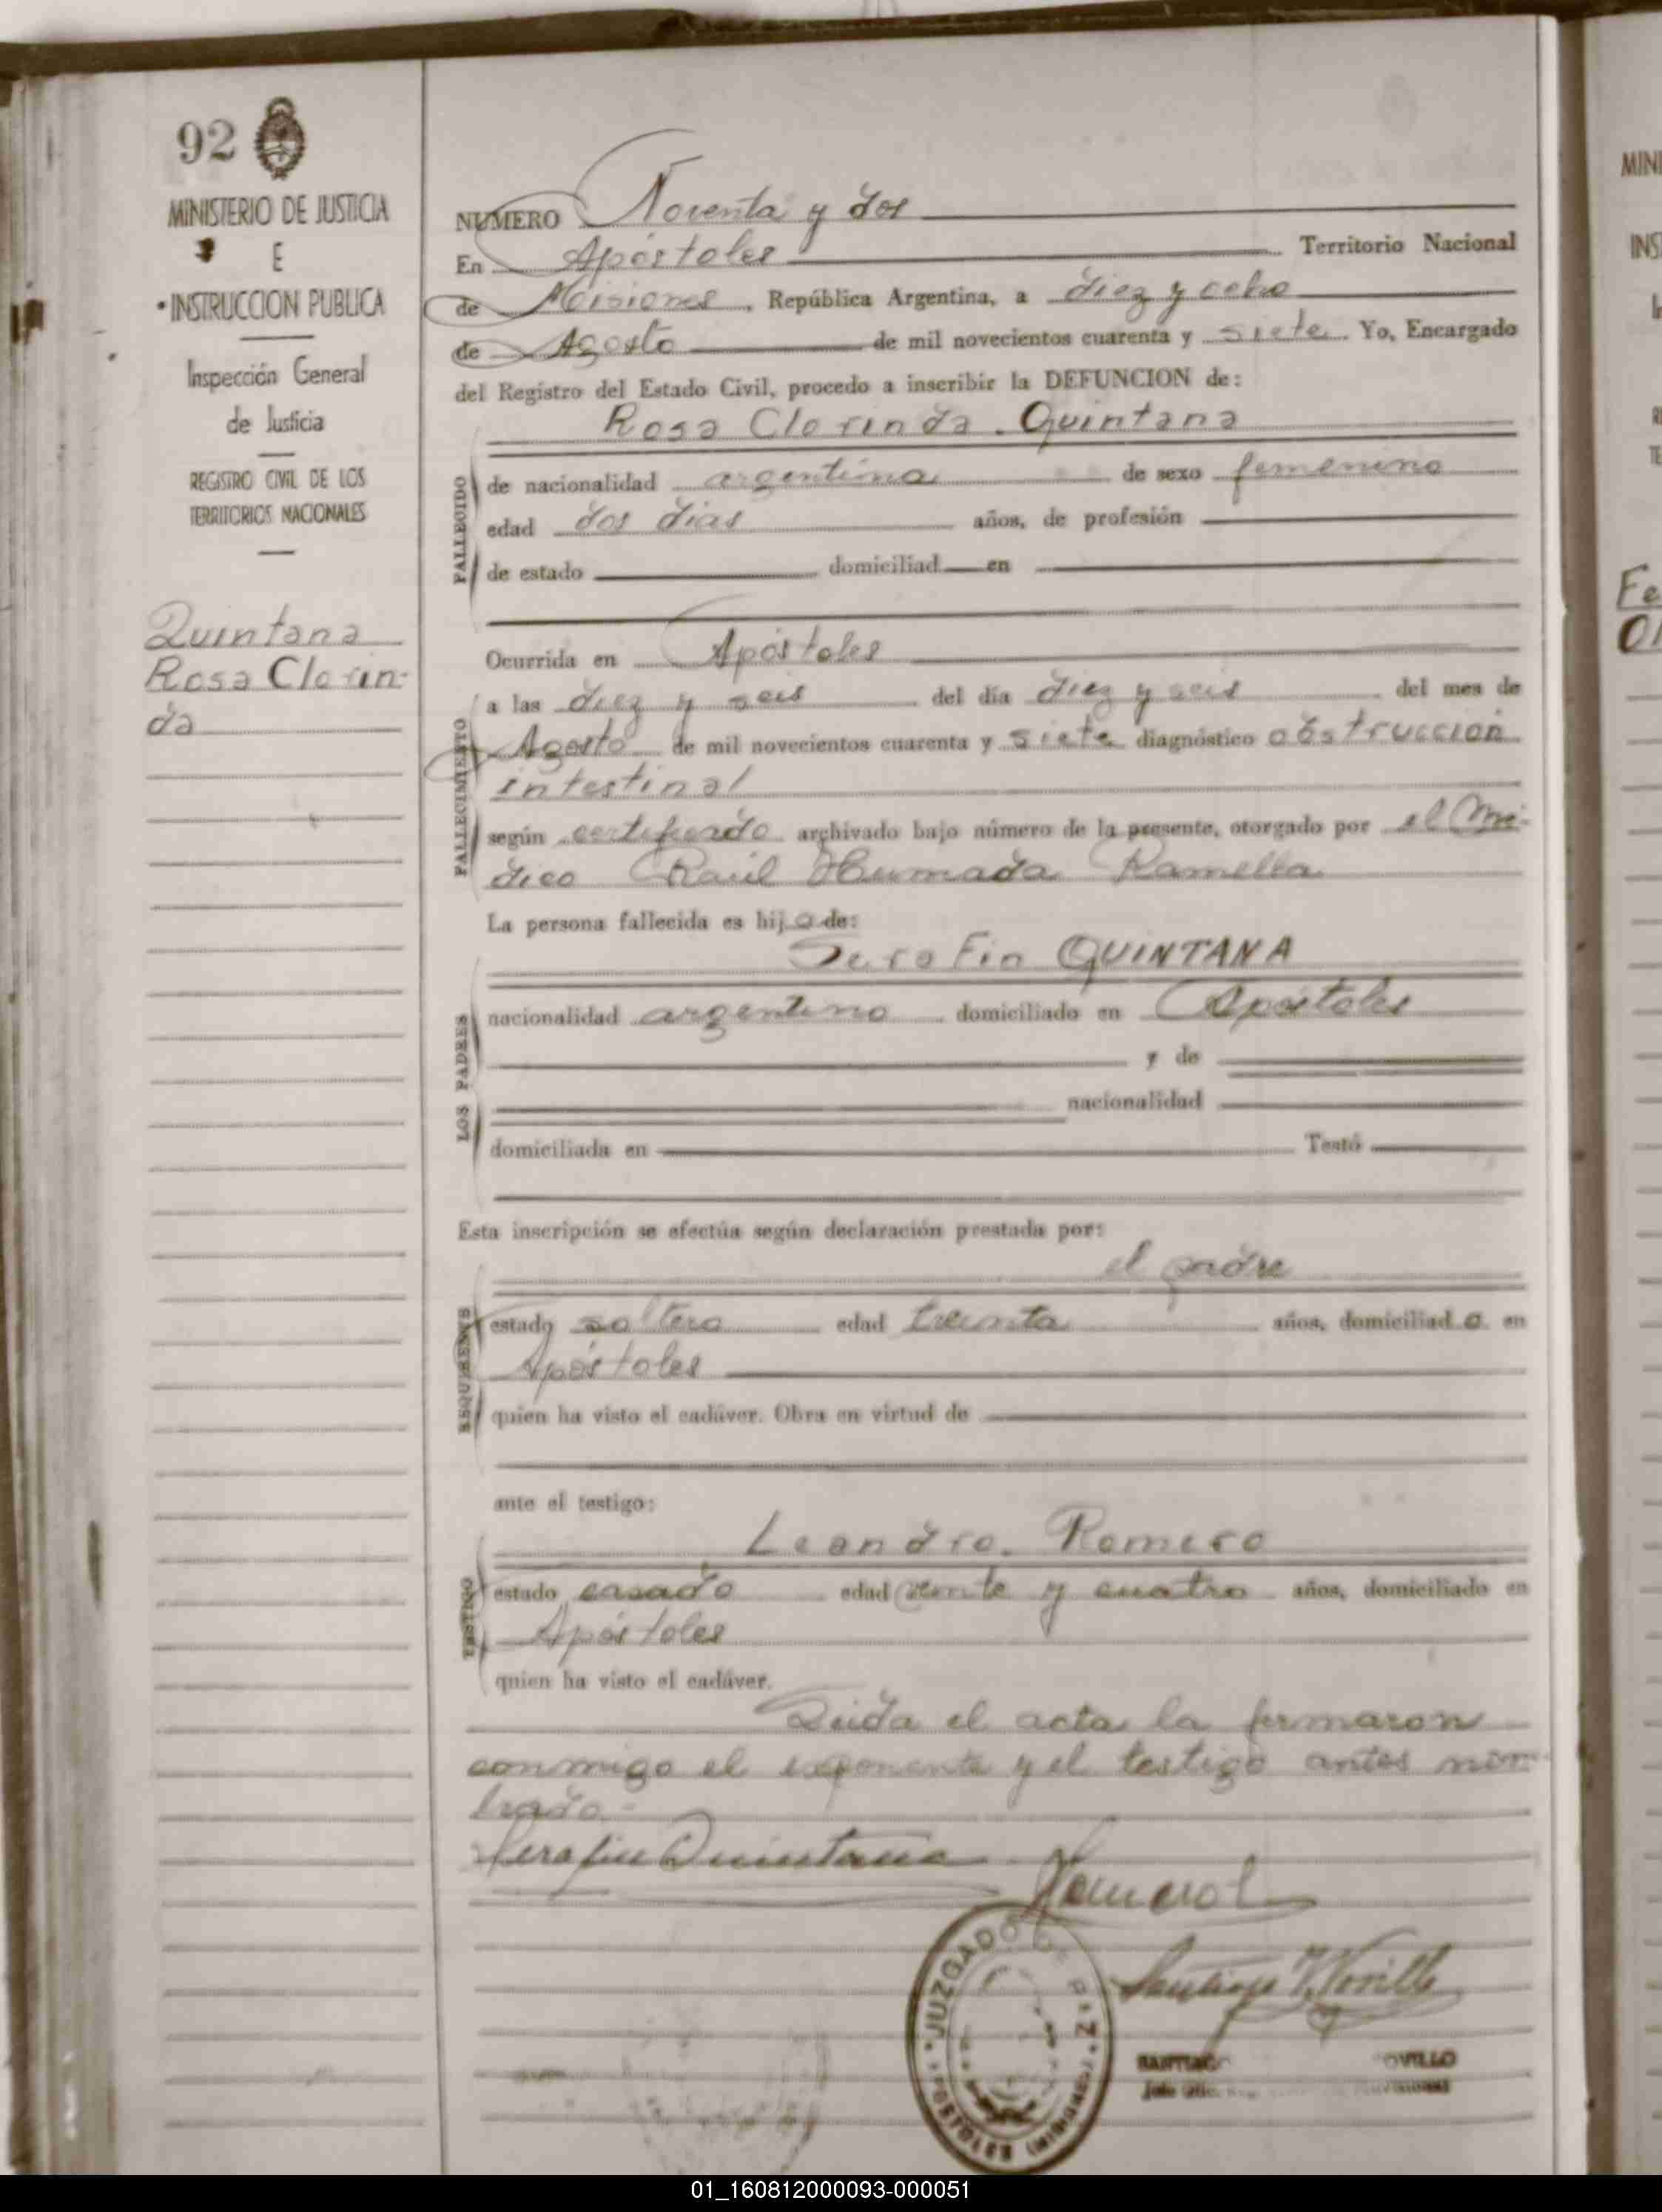 92
MINISTERIO DE JUSTICIA
E
INSTRUCCION PUBLICA
Inspección General
de Justicia
REGISTRO CIVIL DE LOS
TERRITORIOS NACIONALES
Quintana
Rosa Clorin-
da
NUMERO Noventa y dos
En Apóstoles Territorio Nacional
de Misiones, República Argentina, a diez y ocho
de Agosto de mil novecientos cuarenta y siete. Yo, Encargado
del Registro del Estado Civil, procedo a inscribir la DEFUNCION de:
Rosa Clorinda Quintana
FALLECIDO
de nacionalidad argentina de sexo femenino
edad dos dias años, de profesión
de estado domiciliad en
Ocurrida en Apóstoles
FALLECIMIENTO
a las diez y seis del día diez y seis del mes de
Agosto de mil novecientos cuarenta y siete diagnóstico obstruccion
intestinal
según certificado archivado bajo número de la presente, otorgado por el Mé-
dico Raúl Humada Ramella
La persona fallecida es hija de:
LOS PADRES
Serafin QUINTANA
nacionalidad argentino domiciliado en Apóstoles
y de
nacionalidad
domiciliada en Testó
Esta inscripción se efectúa según declaración prestada por:
REQUIRENTE
el padre
estado soltero edad treinta años, domiciliado en
Apóstoles
quien ha visto el cadáver. Obra en virtud de
ante el testigo:
TESTIGO
Leandro Romero
estado casado edad veinte y cuatro años, domiciliado en
Apóstoles
quien ha visto el cadáver.
Leida el acta la firmaron
conmigo el exponente y el testigo antes nom-
brado.-
Serafin Quintana
Romero L
JUZGADO DE PAZ
APOSTOLES (MISIONES)
SANTIAGO OVILLO
MINI
INS
Fe
01_160812000093-000051